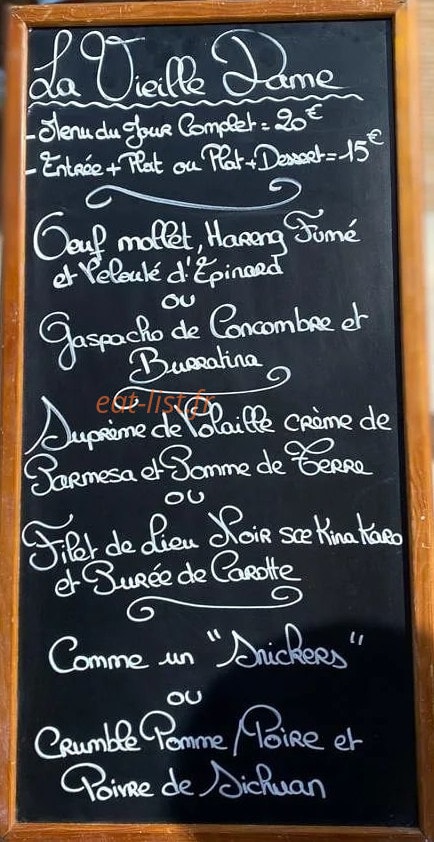 La Vieille Dame
- Menu du Jour Complet = 20€
- Entrée + Plat ou Plat + Dessert = 15€
Oeuf mollet, Hareng Fumé
et Velouté d'Epinard
ou
Gaspacho de Concombre et
Burratina
eat-list.fr
Suprème de Volaille crème de
Parmesa et Pomme de Terre
ou
Filet de Lieu Noir sce Kina Karo
et Purée de Carotte
Comme un "Snickers"
ou
Crumble Pomme/Poire et
Poivre de Sichuan